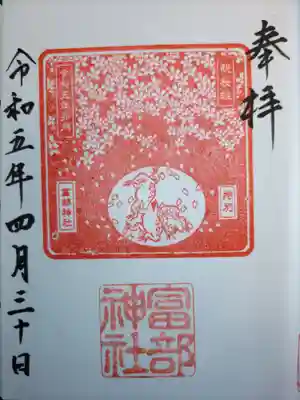 奉拝
特別
富部神社
富部
神社
令和五年四月三十日